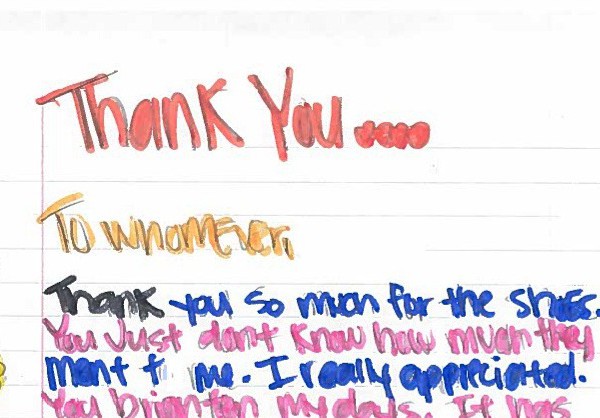 Thank You....
To whomever,
Thank you so much for the shoes.
You Just dont know how much they
ment t me. I really appreciated.
You brighten my days. It was